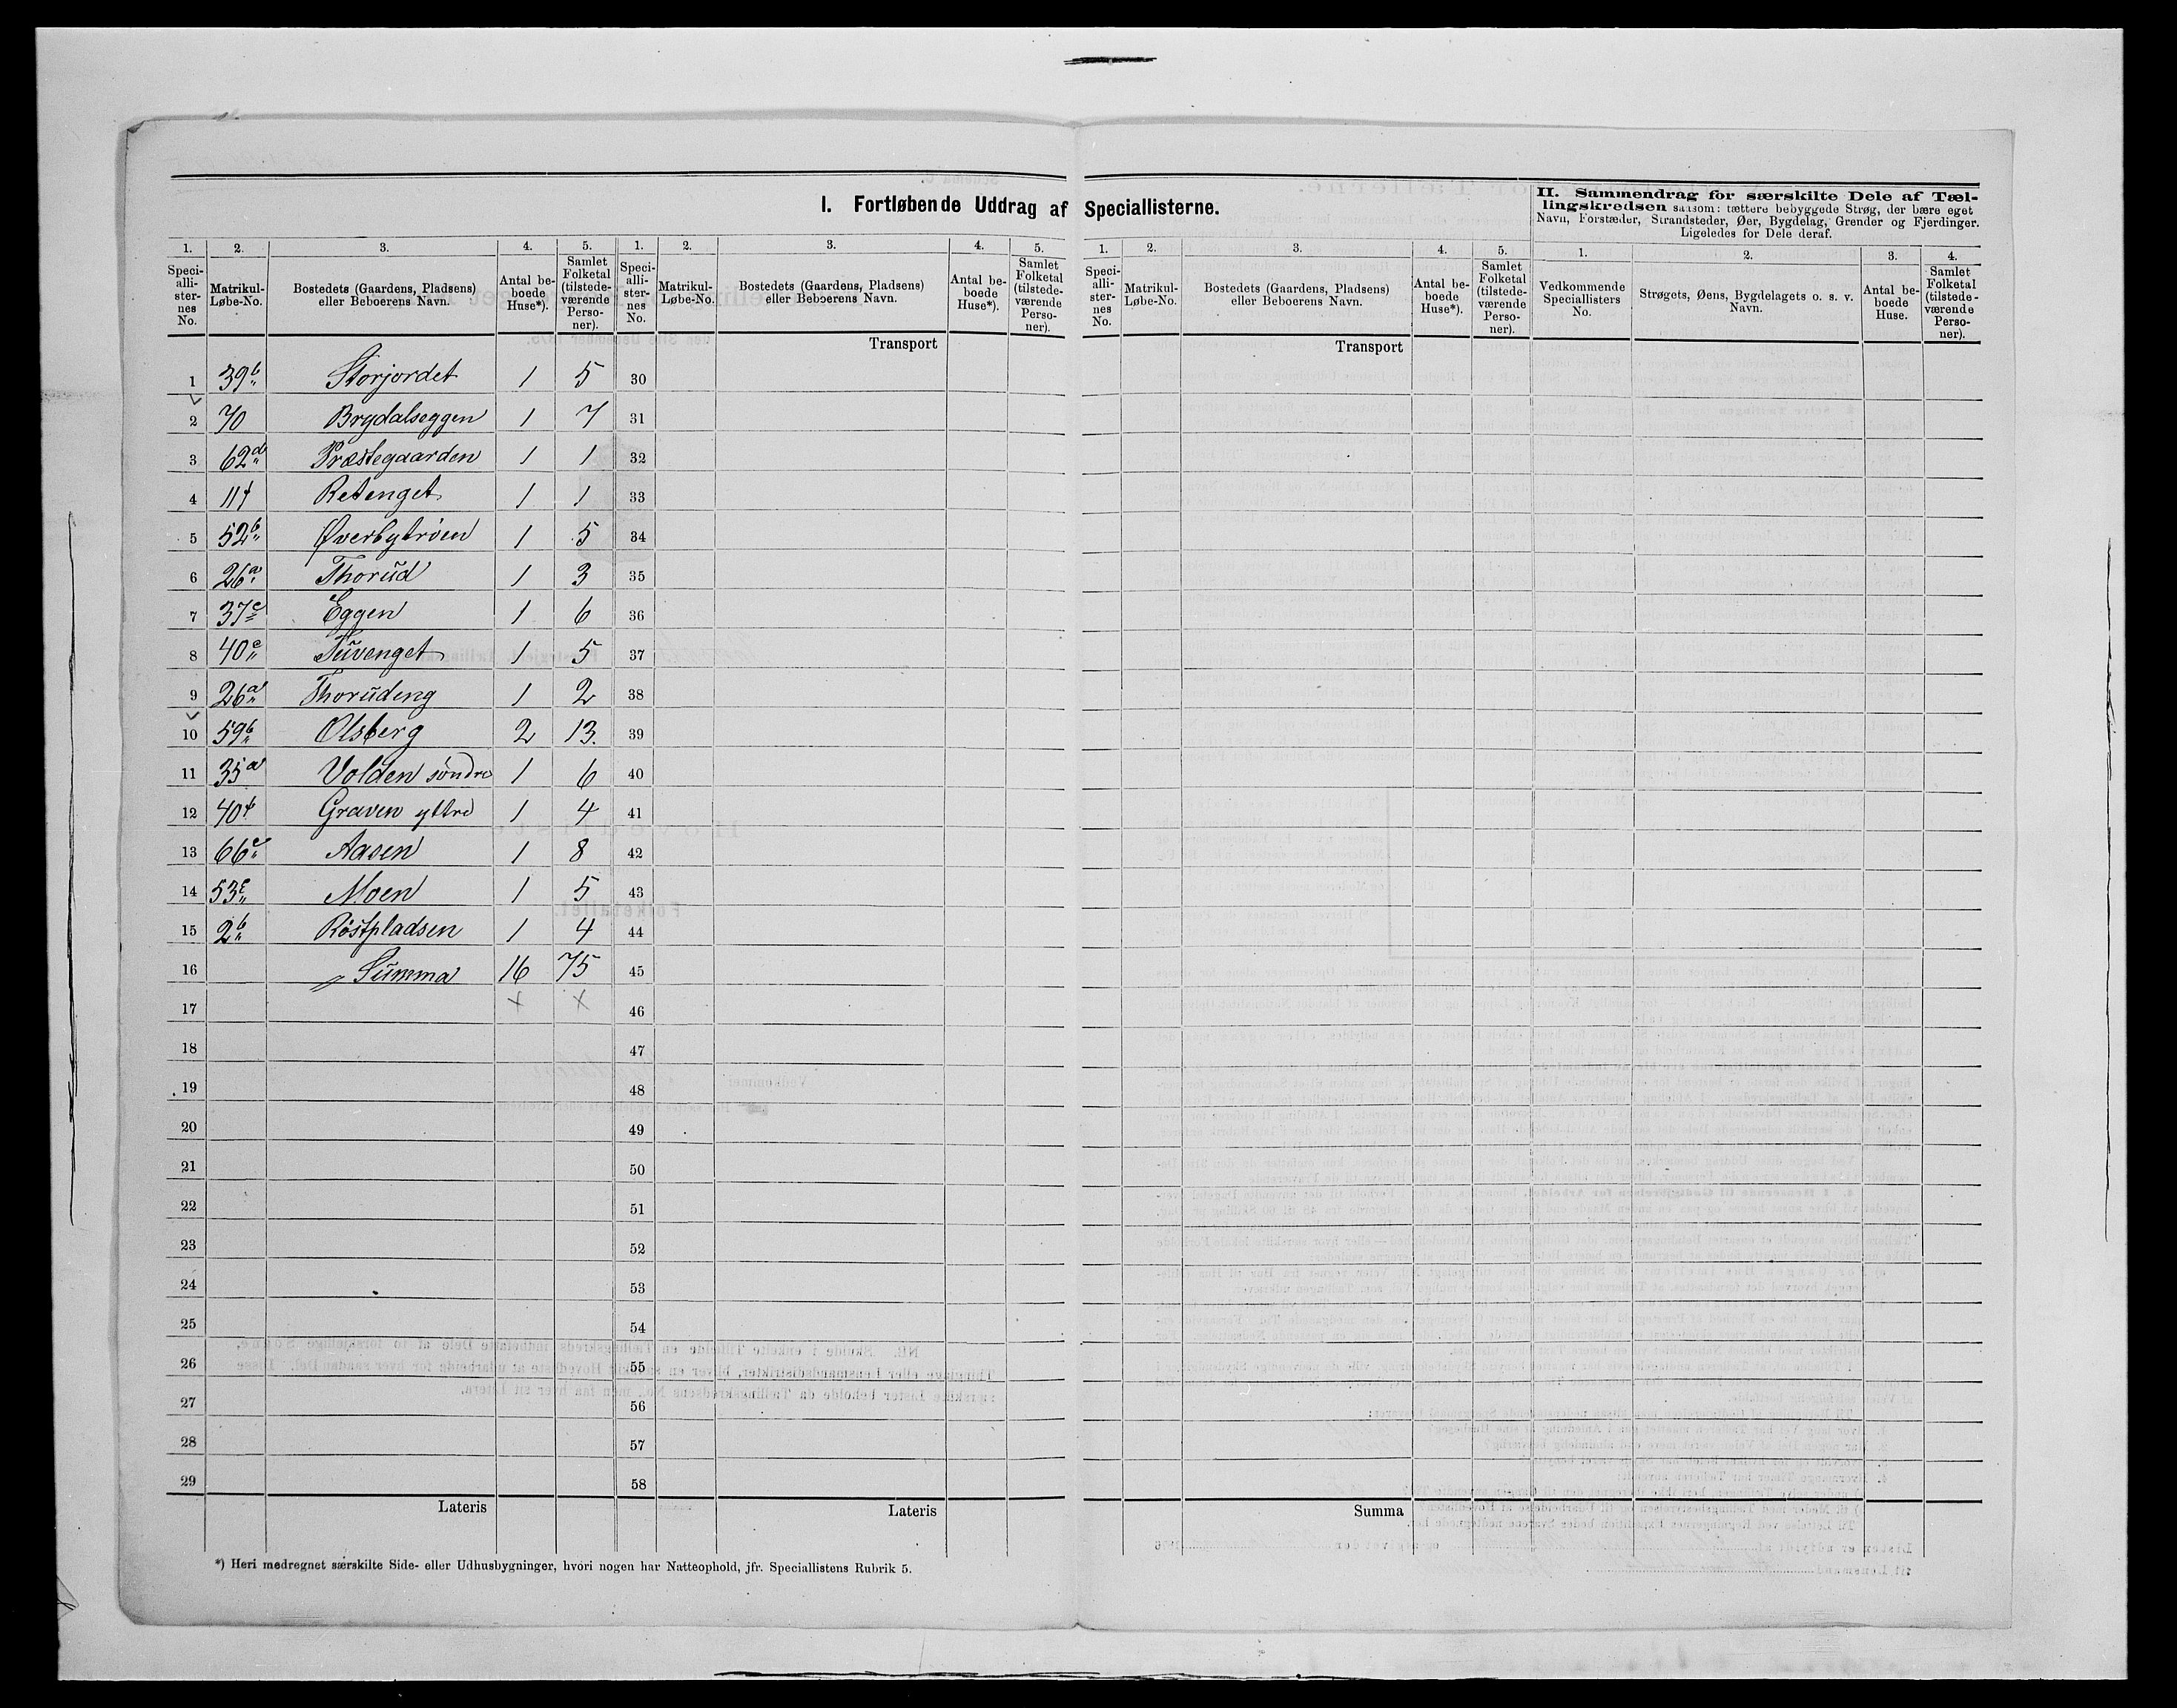 I. Fortløbende Uddrag af Speciallisterne.
II. Sammendrag for særskilte Dele af Tæl-
lingskredsen saasom: tættere bebyggede Strøg, der bære eget
Navn, Forstæder, Strandsteder, Øer, Bygdelag, Grender og Fjerdinger.
Ligeledes for Dele deraf.
1. 2. 3. 4. 5. 1. 2. 3. 4. 5. 1. 2. 3. 4. 5. 1. 2. 3. 4.
Speci-alli-ster-nes No. Matrikul-Løbe-No. Bostedets (Gaardens, Pladsens) eller Beboerens Navn. Antal be-boede Huse*). Samlet Folketal (tilstede-værende Perso-ner).
Speci-alli-ster-nes No. Matrikul-Løbe-No. Bostedets (Gaardens, Pladsens) eller Beboerens Navn. Antal be-boede Huse*). Samlet Folketal (tilstede-værende Perso-ner).
Speci-alli-ster-nes No. Matrikul-Løbe-No. Bostedets (Gaardens, Pladsens) eller Beboerens Navn. Antal be-boede Huse*). Samlet Folketal (tilstede-værende Perso-ner).
Vedkommende Speciallisters No. Strøgets, Øens, Bygdelagets o. s. v. Navn. Antal be-boede Huse. Samlet Folketal (tilstede-værende Perso-ner).
Transport Transport
1 39b Storjordet 1 5 30
2 70 Brydalseggen 1 7 31
3 62d Præstegaarden 1 1 32
4 11f Retenget 1 1 33
5 52b Øverbytrøen 1 5 34
6 26a Thorud 1 3 35
7 37c Eggen 1 6 36
8 40c Tuvenget 1 5 37
9 26a Thorudeng 1 2 38
10 59b Olsberg 2 13. 39
11 35a Volden søndre 1 6 40
12 40f Graven yttre 1 4 41
13 66c Aasen 1 8 42
14 53c Moen 1 5 43
15 2b Röstpladsen 1 4 44
16 Summa 16 75 45
17 × × 46
18 47
19 48
20 49
21 50
22 51
23 52
24 53
25 54
26 55
27 56
28 57
29 58
Lateris Lateris Summa
*) Heri medregnet særskilte Side- eller Udhusbygninger, hvori nogen har Natteophold, jfr. Speciallistens Rubrik 5.